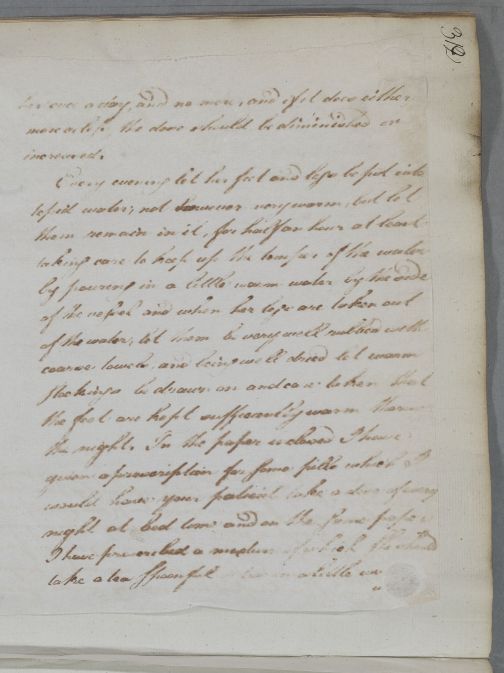 312
her once a day, and no more, and if it does either
more or less, the dose should be diminished or
increased.
Every evening let her feet and legs be put into
tepid water, not however very warm, but let
them remain in it, for half an hour at least
taking care to keep up the temper. of the water
by pouring in a little warm water by the side
of the vessel and when her legs are taken out
of the water, let them be very well rubbed with
coarse towels, and being well dried let warm
stockings be drawn on and care taken that
the feet are kept sufficiently warm thro
the night. In the paper inclosed I have
given a prescription for some pills which I
would have your patient take a dose of every
night at bed time and on the same paper
I have prescribed a mixture of which she should
take a tea spoonful in a little